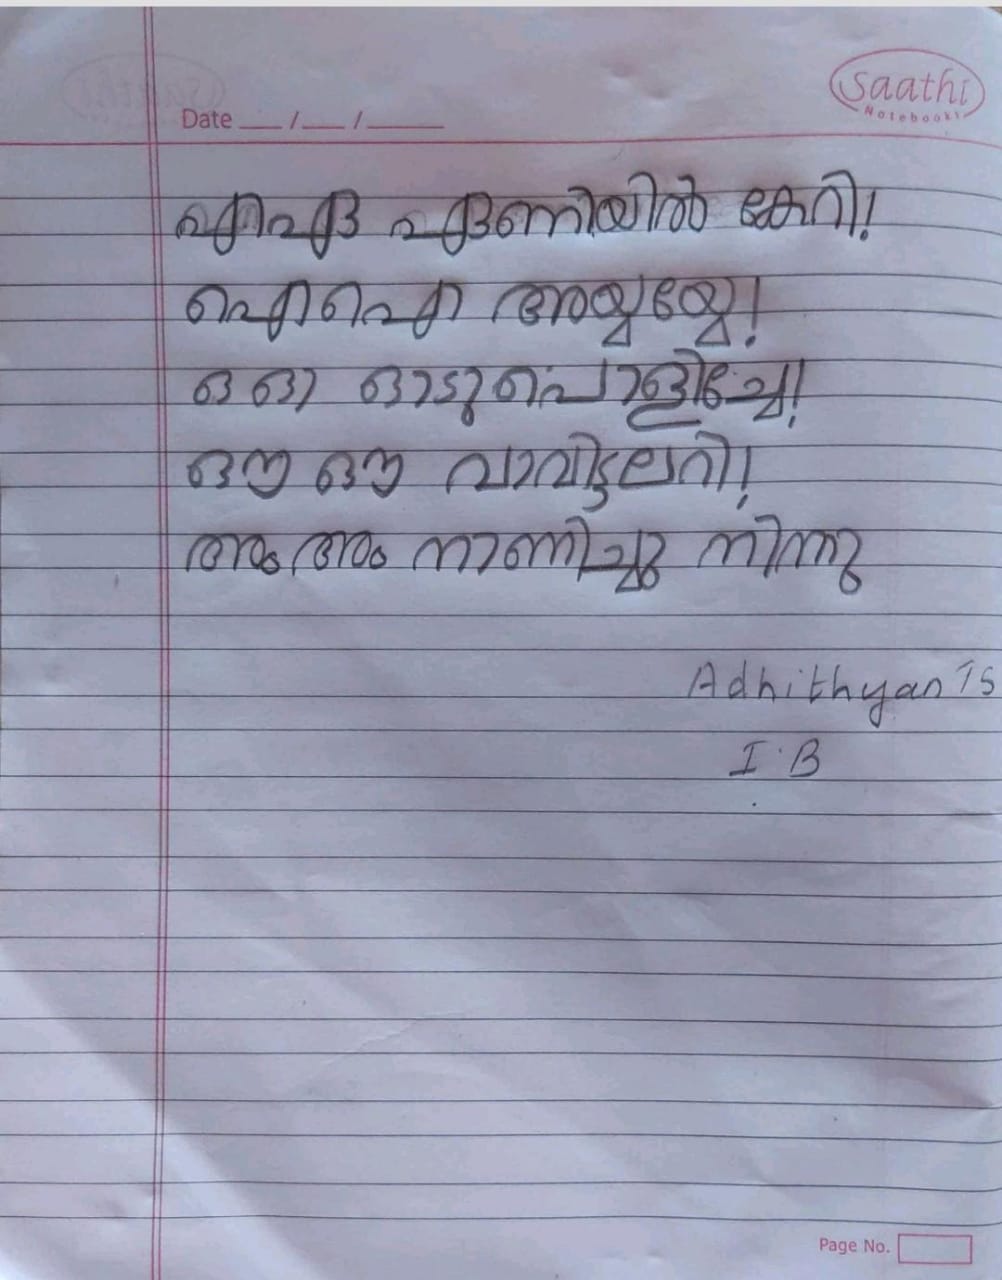 Saathi
Notebooks
Date __/__/____
എഏ ഏണിയിൽ കേറി!
ഐഐ അയ്യയ്യേ!
ഒഓ ഓടുപൊളിച്ചേ!
ഔഔ വാവിട്ടലറി!
അംഅം നാണിച്ചു നിന്നു
Adhithyan TS
I B
Page No.